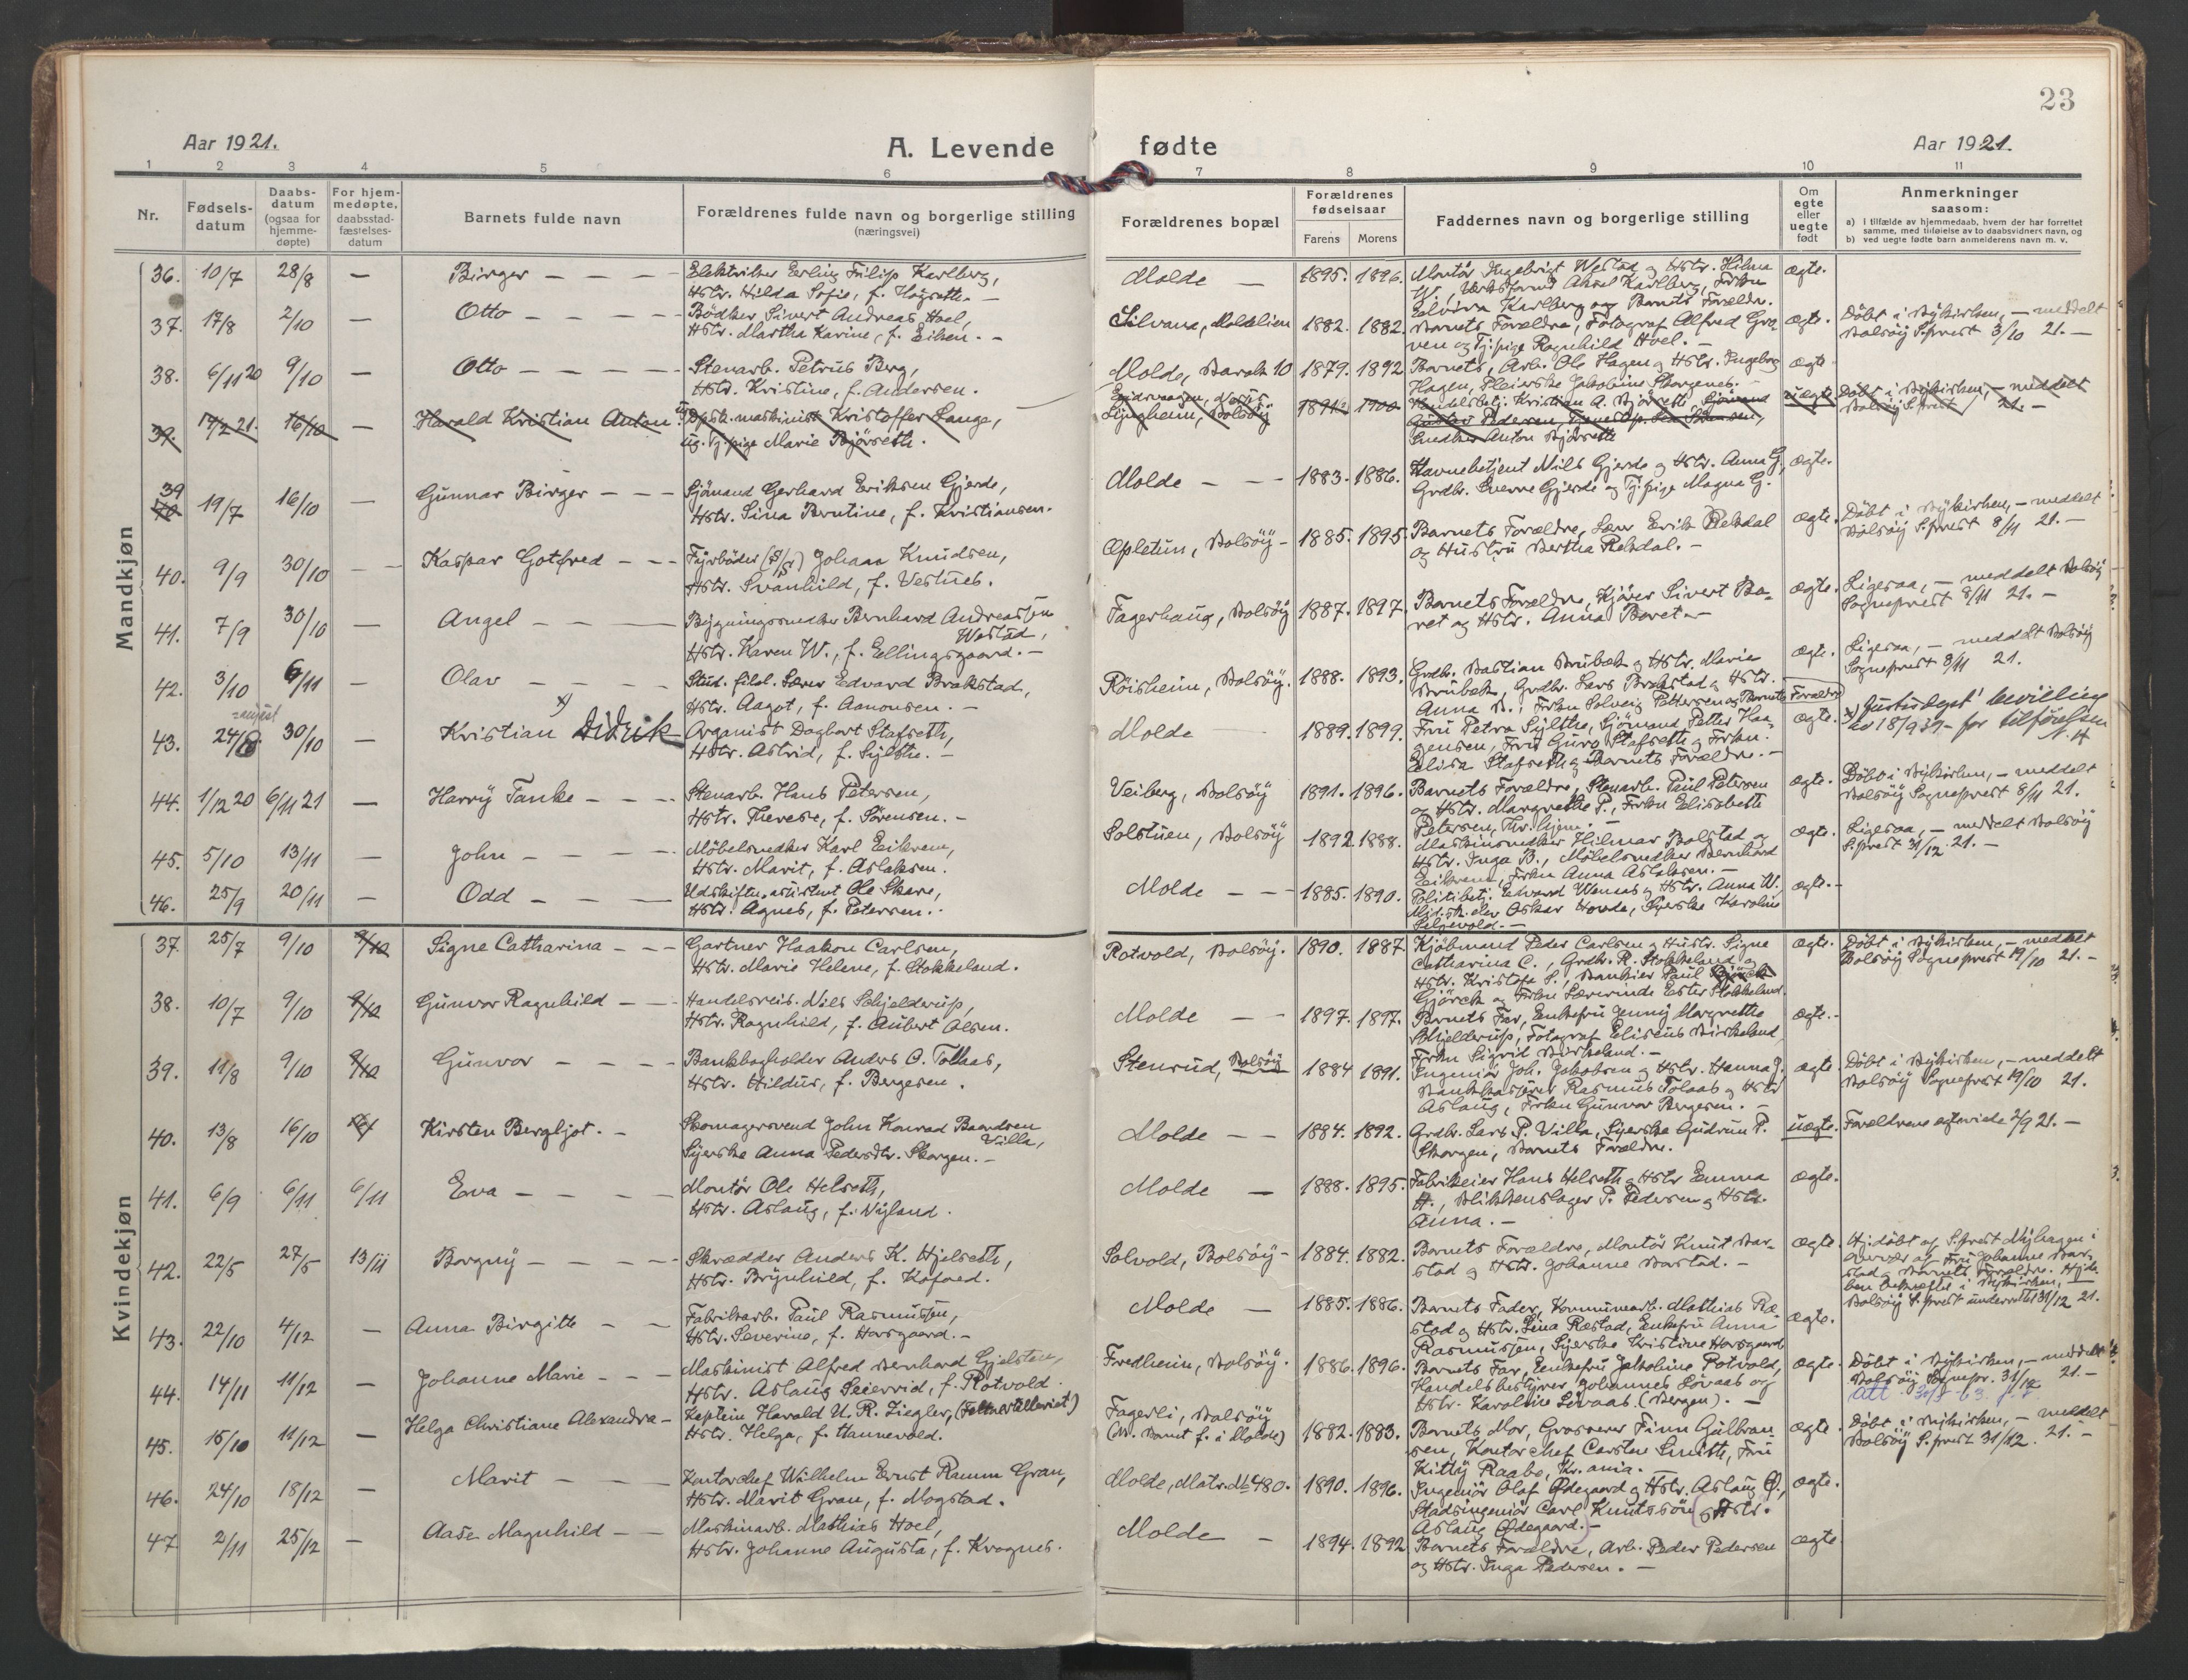 23
Aar 1921.
A. Levende
fødte
Aar 1921.
1 2 3 4 5 6 7 8 9 10 11
Nr.
Fødsels-
datum
Daabs-
datum
(ogsaa for
hjemme-
døpte)
For hjem-
medøpte,
daabsstad-
fæstelses-
datum
Barnets fulde navn
Forældrenes fulde navn og borgerlige stilling
(næringsvei)
Forældrenes bopæl
Forældrenes
fødselsaar
Farens Morens
Faddernes navn og borgerlige stilling
Om
egte
eller
uegte
født
Anmerkninger
saasom:
a) i tilfælde av hjemmedaab, hvem der har forrettet
samme, med tilføielse av to daabsvidners navn, og
b) ved uegte fødte barn anmelderens navn m. v.
Mandkjøn
36. 10/7 28/8 — Birger — — —
Elektriker Erling Filip Karlberg,
Hstr. Hilda Sofie, f. Høgseth. —
Molde — 1895. 1896.
Montør Ingebrigt Westad og Hstr. Hilma
W., Verksformd Aksel Karlberg, Frkn
Elvira Karlberg og Barnets Forældre.
ægte.
37. 17/8 2/10 — Otto — — —
Bødker Sivert Andreas Hoel,
Hstr. Martha Karine, f. Eiken. —
Silvana, Moldelien 1882. 1882.
Barnets Forældre, Fotograf Alfred Gro-
ven og Tj.pige Ragnhild Hoel. —
ægte.
Døbt i Nykirken, — meddelt
Bolsöy S.prest 3/10 21. —
38. 6/11 20 9/10 — Otto — — —
Stenarb. Petrus Berg,
Hstr. Kristine, f. Andersen.
Molde, Barak 10 1879. 1892
Barnets, Arb. Ole Hagen og Hstr. Ingeborg
Hagen, Pleierske Jakobine Skorgenes. —
ægte
39. 17/2 21. 16/10 — Harald Kristian Anton
Opsk. maskinist Kristoffer Lange,
ug. Tj.pige Marie Bjørseth.
Eidsvaagen, Nesset
Lyngheim, Bolsöy 1900.
Handelsbetj. Kristian A. Bjørseth, Sjømand
Gustav Pedersen,
Snedker Anton Bjørseth
uægte
Døbt i Nykirken, — meddelt
Bolsöy S.prest 21. —
39 40 19/7 16/10 — Gunnar Birger — —
Sjömand Gerhard Eriksen Gjerde,
Hstr. Sina Berntine, f. Kristiansen.
Molde — — 1883. 1886.
Havnebetjent Nils Gjerde og Hstr. Anna G,
Grdbr. Sverre Gjerde og Tj.pige Magna G.
ægte.
40. 9/9 30/10 — Kaspar Gotfred — —
Fyrböder (D/S) Johan Knudsen,
Hstr. Svanhild, f. Vestnes.
Øpletun, Bolsöy — 1885. 1895.
Barnets Forældre, Lærer Erik Rekdal
og Hustru Bertha Rekdal. —
ægte.
Døbt i Nykirken, — meddelt
Bolsöy S.prest 8/11 21. —
41. 7/9 30/10 — Angel — —
Bygningssnedker Bernhard Andreassen
Westad,
Hstr. Karen W., f. Ellingsgaard. —
Fagerhaug, Bolsöy 1887. 1897.
Barnets Forældre, Kjører Sivert Bo-
ret og Hstr. Anna Boret —
ægte.
Ligesaa, — meddelt Bolsöy
Sogneprest 8/11 21. —
42. 3/10 6/11 — Olav — — —
Stud. filol. Lærer Edvard Brakstad,
Hstr. Aagot, f. Aanonsen. —
Röisheim, Bolsöy. 1888. 1893.
Grdbr. Bastian Brubæk og Hstr. Marie
Brubæk, Grdbr. Lars Brakstad og Hstr.
Anna B., Frkn Solveig Pettersen og Barnets Forældre
ægte.
Ligesaa, — meddelt Bolsöy
Sogneprest 8/11 21.
43. 24/8 =august 30/10 — Kristian x) Didrik
Organist Dagbert Stafseth,
Hstr. Astrid, f. Sylthe. —
Molde 1889. 1899.
Fru Petra Sylthe, Sjömand Petter Haa-
gensen, Fru Guro Stafseth og Frkn.
Elisa Stafseth og Barnets Forældre. —
ægte.
x) Justisdept' bevilling
av 18/9 39 - for tilføielsen
44. 1/12 20 6/11 21 — Harry Tanke — —
Stenarb. Hans Petersen,
Hstr. Therese, f. Sørensen. —
Veiberg, Bolsöy 1891. 1896.
Barnets Forældre, Stenarb. Paul Petersen
og Hstr. Margrethe P., Frkn Elisabeth
Petersen, Thr.hjem. —
ægte.
Døbt i Nykirken, — meddelt
Bolsöy Sogneprest 8/11 21.
45. 5/10 13/11 — John — — —
Møbelsnedker Karl Eikrem,
Hstr. Marit, f. Aslaksen.
Solstuen, Bolsöy 1892. 1888.
Maskinsnedker Hilmar Bolstad og
Hstr. Inga B., Møbelsnedker Bernhard
Eikrem, Frkn Anna Aslaksen. —
ægte.
Ligesaa, — meddelt Bolsöy
S.prest 31/12 21. —
46. 25/9 20/11 — Odd — —
Udskiftn.assistent Ole Skare,
Hstr. Agnes, f. Petersen.
Molde — — 1885. 1890.
Politibetj. Edvard Wenaas og Hstr. Anna W.,
Mid.sk.elev Oskar Hovde, Syerske Karoline
Seljevold. —
ægte. —
Kvindekjøn
37. 25/7 9/10 9/10 Signe Catharina — —
Gartner Haakon Carlsen,
Hstr. Marie Helene, f. Stokkeland.
Rotvold, Bolsöy. 1890. 1887.
Kjöbmand Peder Carlsen og Hustr. Signe
Catharina C., Grdbr. R. Stokkeland og
Hstr. Kristofa S., Bankier Paul
Gjörck og Frkn Lærerinde Ester Stokkeland.
ægte.
Døbt i Nykirken, — meddelt
Bolsöy Sogneprest 19/10 21. —
38. 10/7 9/10 9/10 Gunvor Ragnhild — —
Handelsreis. Nils Schjelderup,
Hstr. Ragnhild, f. Aubert Olsen.
Molde — — 1897. 1897.
Barnets Far, Enkefru Jenny Margrethe
Schjelderup, Fotograf Eliseus Birkeland,
Frkn Sigrid Birkeland. —
ægte. —
39. 11/8 9/10 9/10 Gunvor — — —
Bankbogholder Anders O. Tollaas,
Hstr. Hildur, f. Bergesen.
Stenrud, Bolsöy 1884 1891.
Ingeniör Joh. Jakobsen og Hstr. Hanna J.
Bankkasserer Rasmus Tolaas og Hstr
Aslaug, Frkn Gunvor Bergesen. —
ægte.
Døbt i Nykirken, — meddelt
Bolsöy Sogneprest 19/10 21.
40. 13/8 16/10 Kirsten Bergljot. —
Skomagersvend John Konrad Baardsen
Villa,
Syerske Anna Pedersdtr. Skorgen. —
Molde — — 1884. 1892.
Grdbr. Lars P. Villa, Syerske Gudrun P.
Skorgen, Barnets Forældre.
uægte.
Forældrene egteviede 2/9 21. —
41. 6/9 6/11 6/11 Eva — — —
Montör Ole Helseth,
Hstr. Aslaug, f. Nyland.
Molde — 1888. 1895.
Fabrikeier Hans Helseth og Hstr Emma
H., Blikkenslager P. Pedersen og Hstr.
Anna. —
ægte.
42. 22/5 27/5 13/11 Borgny — — —
Skrædder Anders K. Hjelseth,
Hstr. Brynhild, f. Kofoed.
Solvold, Bolsöy — 1884. 1882.
Barnets Forældre, Montör Knut Bar-
stad og Hstr. Johanne Barstad. —
ægte.
Hj.døbt af S.prest Nyhagen i
nærvær af Fru Johanne Bar-
stad og Barnets Forældre. Hjdå-
ben bekræftet i Nykirken, —
Bolsöy S.prest underrettet 31/12 21.
43. 22/10 4/12 — Anna Birgitte — —
Fabrikarb. Paul Rasmussen,
Hstr. Severine, f. Horsgaard. —
Molde — 1885. 1886.
Barnets Fader, Kommunearb. Mathias Ræ-
stad og Hstr. Lina Ræstad, Enkefru Anna
Rasmussen, Syerske Kristine Horsgaard
ægte.
44. 14/11 11/12 — Johanne Marie — —
Maskinist Alfred Bernhard Gjelsten,
Hstr. Aslaug Seierrid, f. Rotvold.
Fredheim, Bolsöy. 1886. 1896.
Barnets Far, Enkefru Jakobine Rotvold,
Handelsbestyrer Johannes Løvaas og
Hstr. Karoline Løvaas. (Bergen). —
ægte.
Døbt i Nykirken, — meddelt
Bolsöy Sognepr. 31/12 21. —
45. 15/10 11/12 — Helga Christiane Alexandra —
Kaptein Harald U. R. Ziegler, (Feltartilleriet)
Hstr. Helga, f. Hannevold.
Fagerli, Bolsöy
(N. Barnet f. i Molde) 1882. 1883.
Barnets Mor, Grosserer Finn Gulbran-
sen, Kontorchef Carsten Smith, Fru
Kitty Raabe, Kr.ania. —
ægte.
Døbt i Nykirken, — meddelt
Bolsöy S.prest 31/12. 21. —
46. 24/10 18/12 — Marit — —
Kontorchef Wilhelm Ernst Ramm Gran,
Hstr. Marit Gran, f. Mogstad.
Molde, Matr. No 480. 1890. 1896.
Ingeniör Olaf Ødegaard og Hstr. Aslaug Ø.,
Stadsingeniör Carl Knutssön (og Hstr.
Aslaug Ødegaard.) —
ægte.
47 2/11 25/12 — Aase Magnhild — —
Maskinarb. Mathias Hoel,
Hstr. Johanne Augusta, f. Kvagnes.
Molde — 1894. 1892
Barnets Forældre, Arb. Peder Pedersen
og Hstr. Inga Pedersen. —
ægte